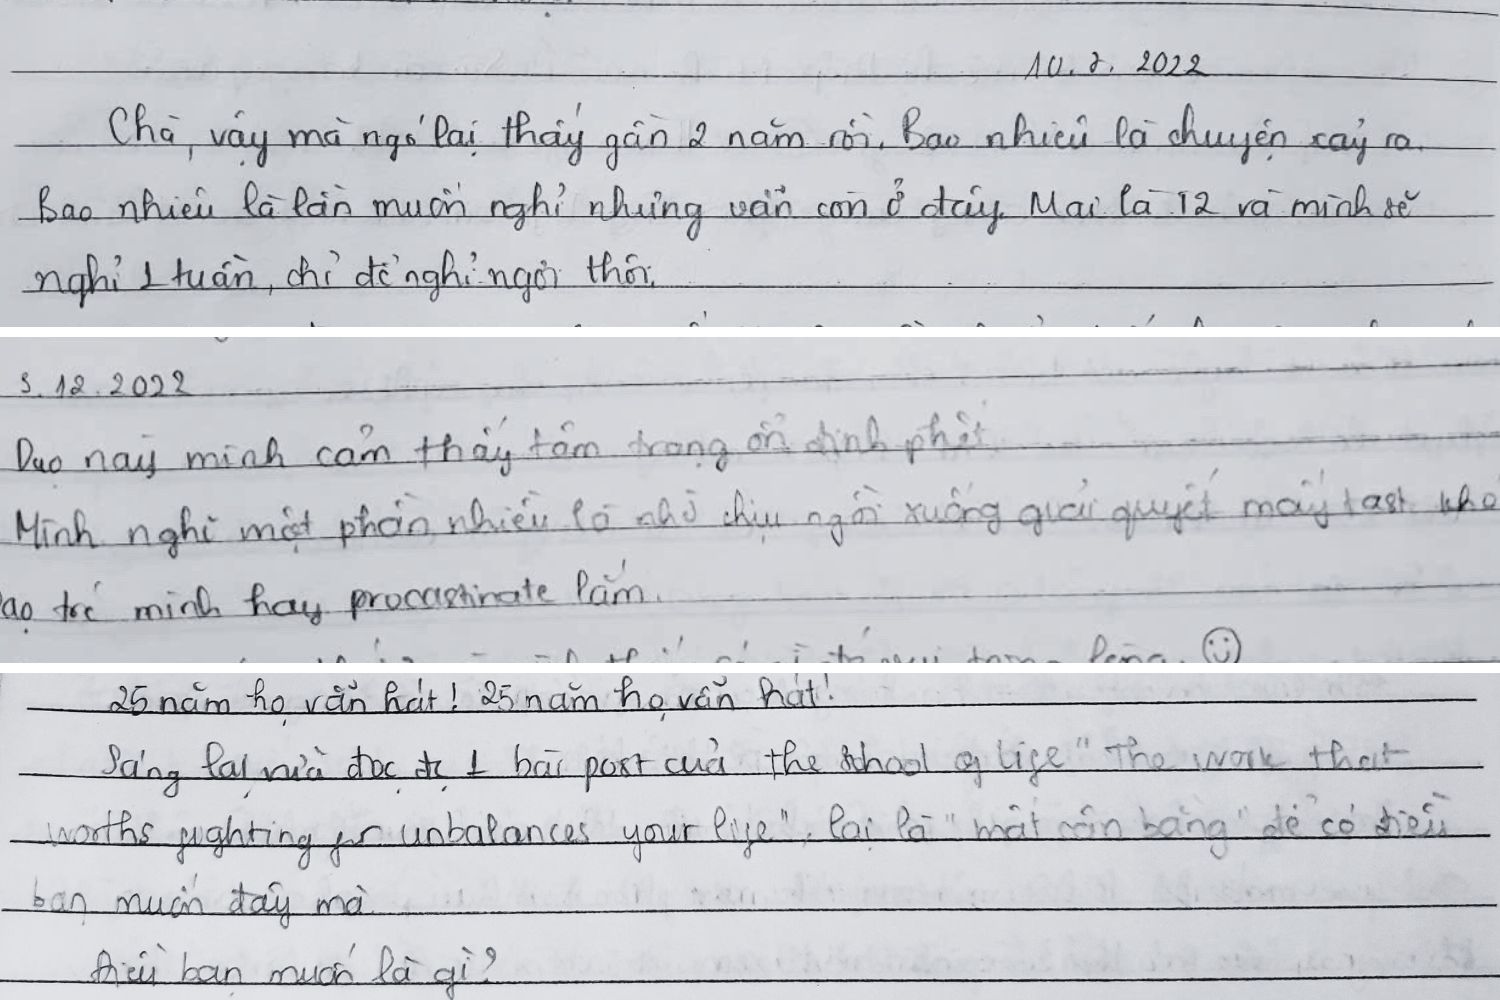 10.2.2022
Chà, vậy mà ngó lại thấy gần 2 năm rồi. Bao nhiêu là chuyện xảy ra.
Bao nhiêu là lần muốn nghỉ nhưng vẫn còn ở đây. Mai là T2 và mình sẽ
nghỉ 1 tuần, chỉ để nghỉ ngơi thôi.
3.12.2022
Dạo này mình cảm thấy tâm trạng ổn định phết
Mình nghĩ một phần nhiều là nhờ chịu ngồi xuống giải quyết mấy task
mình hay procastinate lắm.
25 năm họ vẫn hát! 25 năm họ vẫn hát!
Sáng lại vừa đọc đc 1 bài post của the school of life "The work that
worths fighting for unbalances your life", lại là "mất cân bằng" để có điều
bạn muốn đấy mà
Điều bạn muốn là gì?